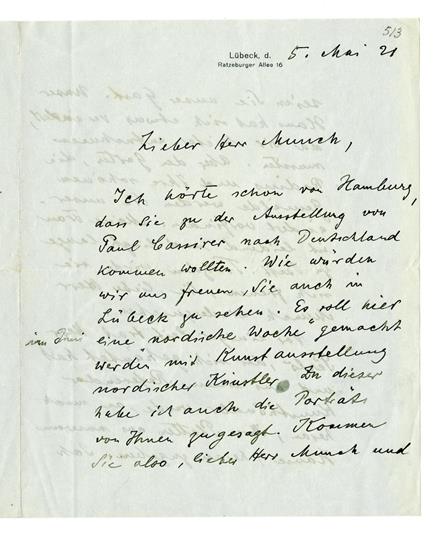 513
Lübeck, d. 5. Mai 21
Ratzeburger Allee 16
Lieber Herr Munch,
Ich hörte schon von Hamburg,
dass Sie zu der Ausstellung von
Paul Cassirer nach Deutschland
kommen wollten. Wie würden
wir uns freuen, Sie auch in
Lübeck zu sehen. Es soll hier
im Juni eine „nordische Woche" gemacht
werden mit Kunstausstellung
nordischer Künstler. Zu dieser
habe ich auch die Porträts
von Ihnen zugesagt. Kommen
Sie also, lieber Herr Munch und